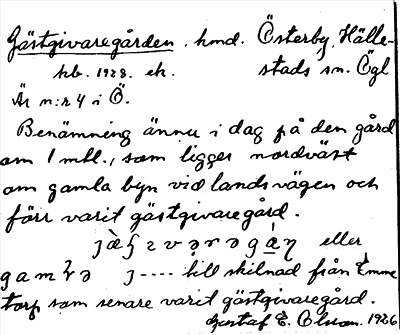 Gästgivaregården. hmd. Österby, Hälle-
hb. 1928. ek. stads sn. Ögl
Är n:r 4 i Ö.
Benämning ännu i dag på den gård
om 1 mtl., som ligger nordväst
om gamla byn vid landsvägen och
förr varit gästgivaregård.
eller
till skilnad från Emme
torp som senare varit gästgivaregård.
Gustaf E. Olsson. 1926